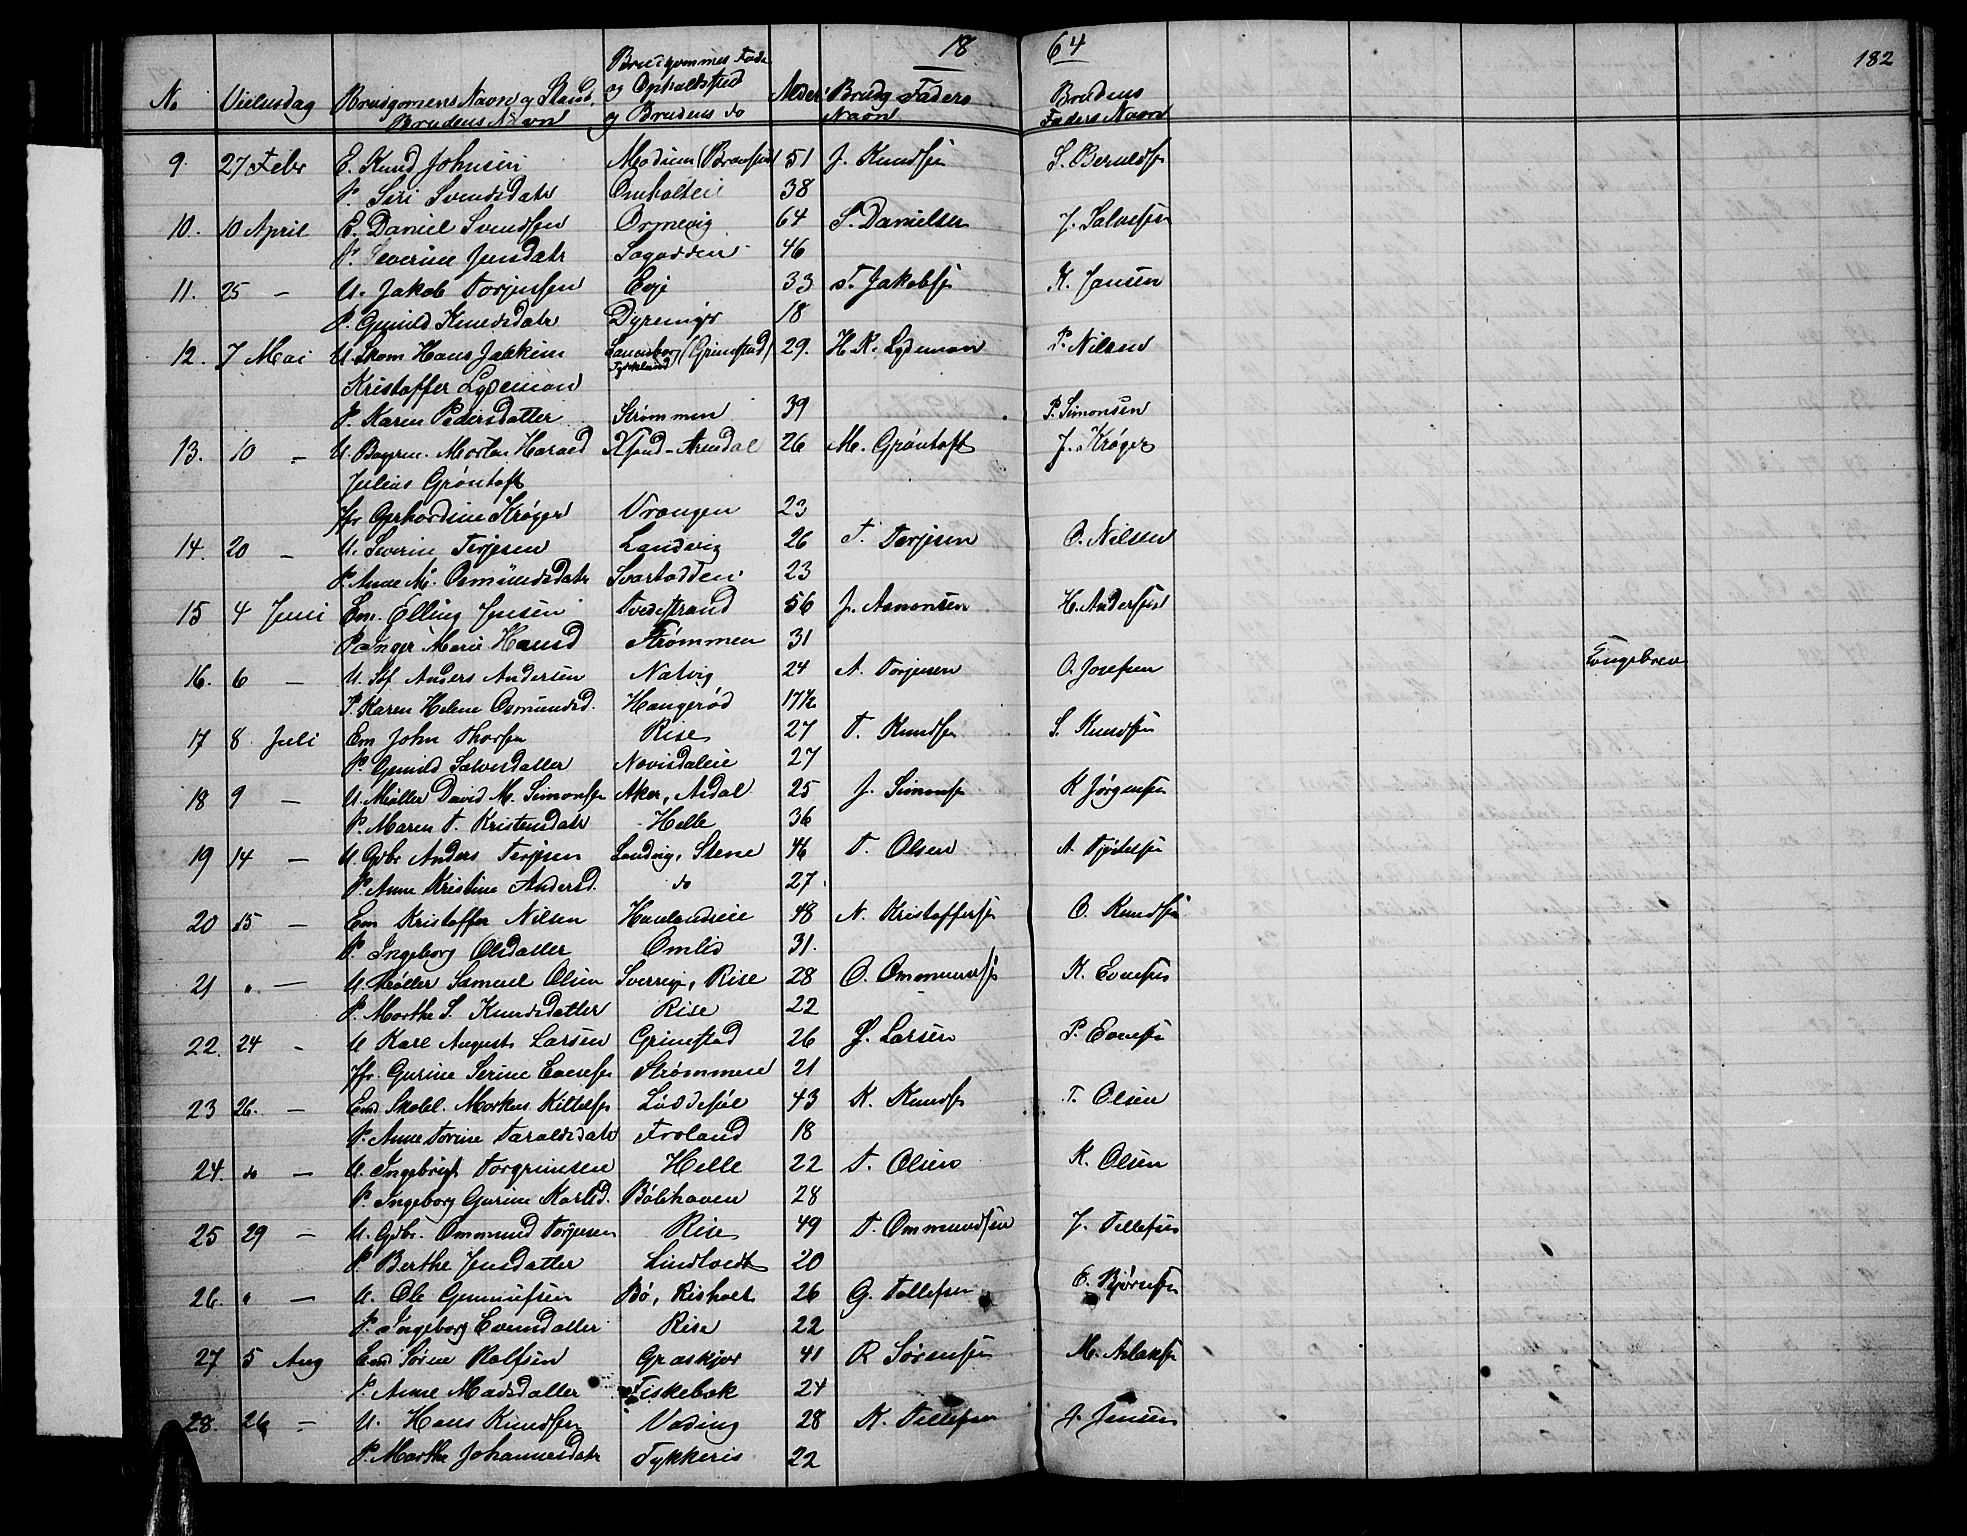 18 64 182
No Vielsesdag Brudgomens Navn og Stand, Brudens Navn Brudgommes Føde og Opholdsted og Brudens do Alder Brudg Faders Navn Brudens Faders Navn
9. 27 Febr E. Knud Johnsen Modum 51 J. Knudsen S.
P. Siri Svendsdatr Omholteie 38
10. 10 April E. Daniel Svendsen Ormevig 64 S. Danielsen J. Salvesen
P. Severine Jensdatr Sagodden 46
11. 25 — U. Jakob Torjensen Evje 33 T. Jakobsen K. Jansen
P. Gunild Knudsdatr 18
12. 7 Mai U. Skom Hans Jakkim Lauenborg (Grimstad) 29. H. K. Lydeman P. Nilsen
Tyskland
Kristoffer Lydeman
P. Karen Pedersdatter Strømmen 39 P. Simonsen
13. 10 — U. Morten Harald Xsand - Arendal 26 M. Grøntoft J. Krøger
Julius Grøntoft
Jfr Gerhardine Krøger Vrangen 23
14. 20 — U. Severin Terjesen Landvig 26 T. Terjesen O. Nilsen
P. Anne M. Osmundsdatr Svartodden 23
15 4 Juni Em. Elling Jensen Tvedestrand 56 J. Aanonsen H. Andersen
P. Inger Marie Hansd Strømmen 31
16. 6 — U. Anders Andersen Natvig 24 A. Torjesen O. Josefsen Engebrev
P. Karen Helene Osmundsd. Hangerød 17½
17 8 Juli Em John Thorsen Rise 27 T. Knudsen S. Knudsen
P. Gunild Salvesdatter Novisdaleie 27
18 9 — U. Møller David M. Simonsen Aker, Ardal 25 J. Simonsen K Jørgensen
P. Maren T. Kristensdatr Helle 36
19 14 — U. Gbr. Anders Terjesen Landvig, Stene 46 T. Olsen A.
P. Anne Kristine Andersd. do 27
20 15 — Em Kristoffer Nilsen 48 N. Kristoffersen O. Knudsen
P. Ingeborg Olsdatter Omlid 31.
21 " — U. Møller Samuel Olsen Sverrige, Rise 28 O. Ommundsen K. Evensen
P. Marthe S. Knudsdatter Rise 22
22. 24 - U Karl August Larsen Grimstad 26 J. Larsen P. Evensen
Jfr. Gurine Serine Evensen Strømmen 21
23 26. — Em Skolel. Markus Kittelsen Løddesøl 43 K. Knudsen T. Olsen
P. Anne Torine Taraldsdatr Froland 18
24. do — U. Ingebrigt Torgrimsen Helle 22 T. Olsen K. Olsen
P. Ingeborg Gurine Karlsd. Bølehaven 28
25 29 — U. Gbr. Ommund Torjensen Rise 49 T. Ommundsen J. Tellefsen
P. Berthe Jensdatter Lindtvedt 20
26. " — U. Ole Gunnufsen Bø, Risholt 26 G. Tollefsen E. Bjørnsen
P. Ingeborg Evensdatter Rise 22
27 5 Aug Em Sørne Rolfsen Graskjør 41 R Sørensen M. Aslaksen
P. Anne Madsdatter Fiskebæk 24
28. 26 — U. Hans Knudsen Vading 28 K. Tellefsen J. Jensen
P. Marthe Johannesdatr Tykkeris 22